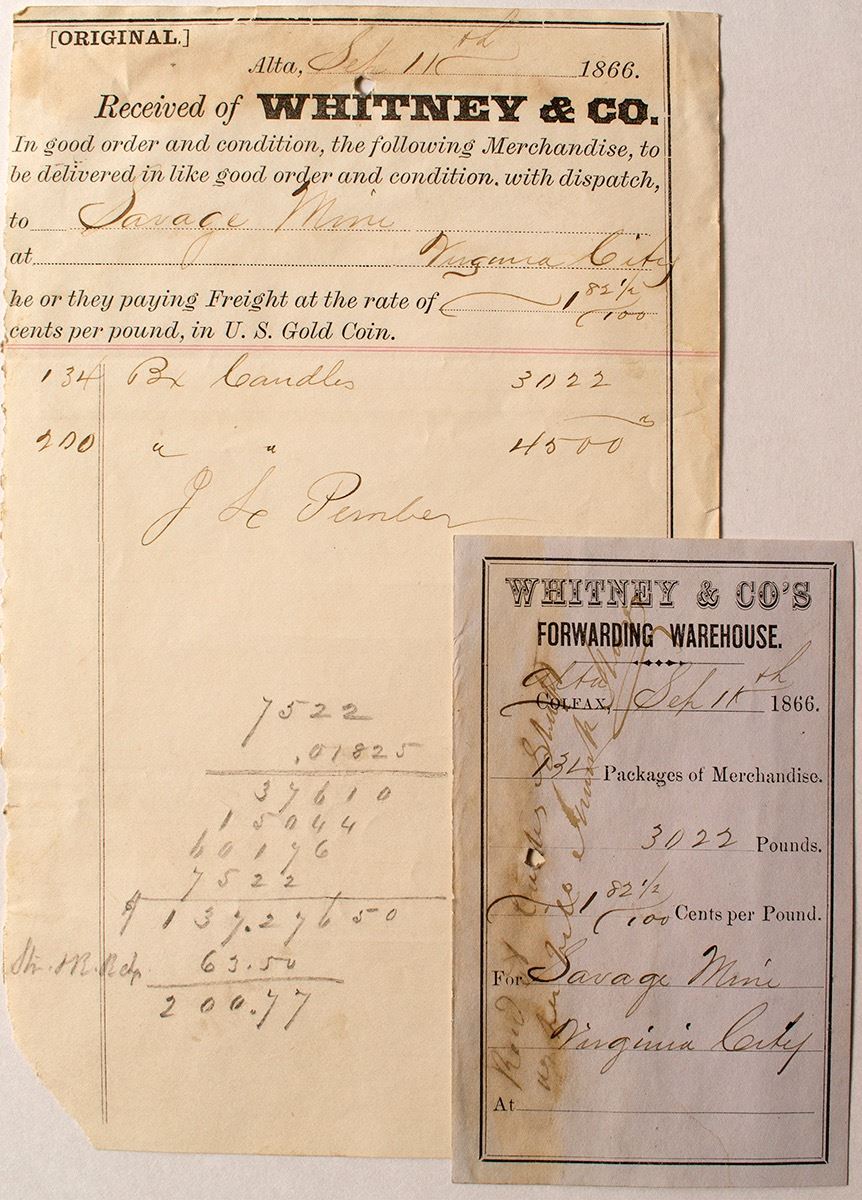 [ORIGINAL.]
Alta, Sep 11th 1866.
Received of WHITNEY & CO.
In good order and condition, the following Merchandise, to
be delivered in like good order and condition, with dispatch,
to Savage Mine
at Virginia City
he or they paying Freight at the rate of 1 82 1/2/100
cents per pound, in U. S. Gold Coin.
134 Bx Candles 3022
200 " " 4500
J Pember
7522
.01825
37610
15044
60176
7522
$ 137.27650
63.50
200.77
WHITNEY & CO'S
FORWARDING WAREHOUSE.
Alta
COLFAX, Sep 11th 1866.
134 Packages of Merchandise.
3022 Pounds.
1 82 1/2/100 Cents per Pound.
For Savage Mine
Virginia City
At